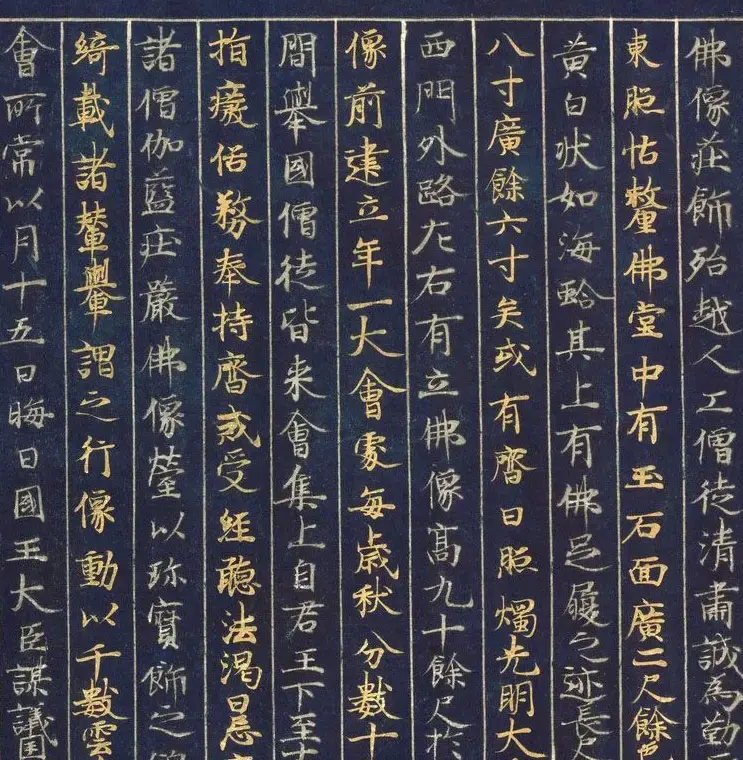 佛像庄飾殆越人工僧徒清肅誠為勤
東照怙釐佛堂中有玉石面廣二尺餘色
黃白狀如海蛤其上有佛足履之迹長尺
八寸廣餘六寸矣或有齋日照燭光明大
西門外路左右有立佛像高九十餘尺於
像前建立年一大會處每歲秋分數十
間舉國僧徒皆来會集上自君王下至士
指廢俗務奉持齋戒受經聽法渴日忘
諸僧伽藍庄嚴佛像瑩以珎寶飾之
綺載諸輦轝謂之行像動以千數雲
會所常以月十五日晦日國王大臣謀議國